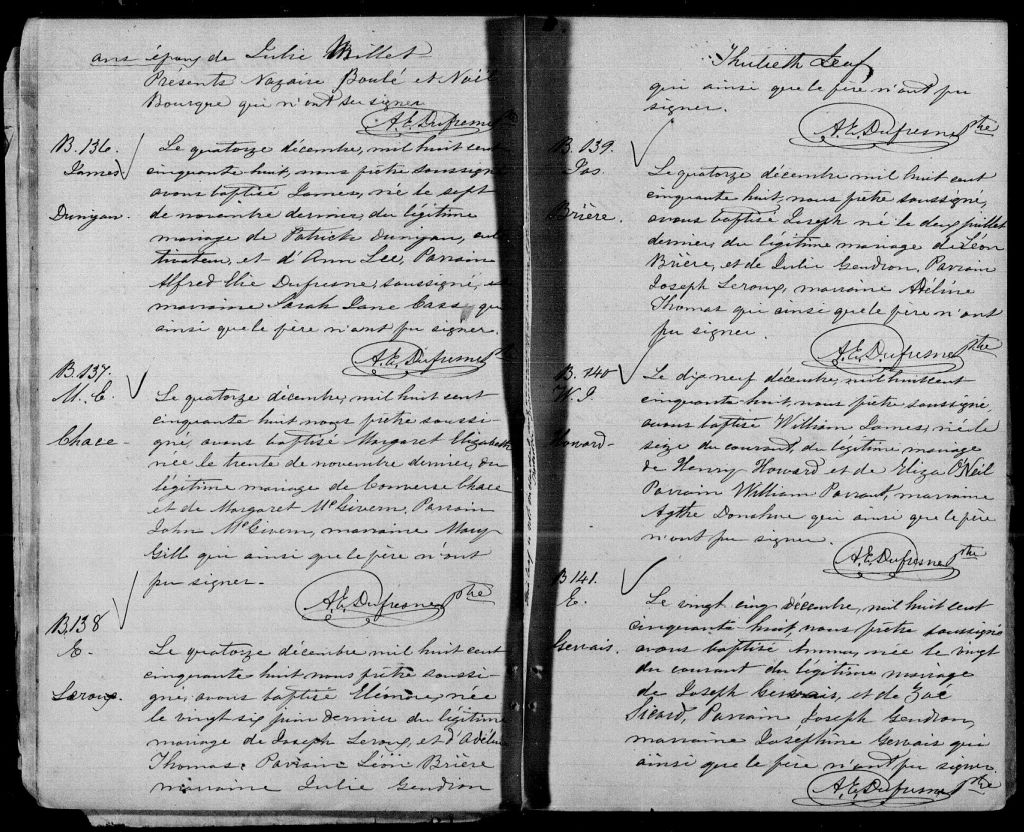 ans époux de Julie Millet
Présents Nazaire Boulé et Noël
Bourque qui n'ont su signer
A.E. Dufresne ptre
B. 136.
James
Dunigan.
Le quatorze décembre, mil huit cent
cinquante huit, nous prêtre soussigné
avons baptisé James, né le sept
de novembre dernier, du légitime
mariage de Patrick Dunigan, cul
tivateur, et d'Ann Lee, Parrain
Alfred Elie Dufresne, soussigné, et
marraine Sarah Jane Cass qui
ainsi que le père n'ont pu signer.
A.E. Dufresne ptre
B. 137.
M. E.
Chace
Le quatorze décembre, mil huit cent
cinquante huit nous prêtre soussi-
gné, avons baptisé Margaret Elizabeth
née le trente de novembre dernier, du
légitime mariage de Converse Chace
et de Margaret McGivern, Parrain
John McGivern, marraine Mary
Gill qui ainsi que le père n'ont
pu signer.
A.E. Dufresne ptre
B. 138
E.
Leroux.
Le quatorze décembre mil huit cent
cinquante huit, nous prêtre soussi-
gné, avons baptisé Eléonore, née
le vingt six juin dernier du légitime
mariage de Joseph Leroux, et d'Adéline
Thomas: Parrain Léon Brière
marraine Julie Gendron
Thirtieth Leaf
qui ainsi que le père n'ont pu
signer.
A.E. Dufresne ptre
B. 139.
Jos
Brière.
Le quatorze décembre mil huit cent
cinquante huit, nous prêtre soussigné,
avons baptisé Joseph né le deux juillet
dernier du légitime mariage de Léon
Brière, et de Julie Gendron, Parrain
Joseph Leroux, marraine Adéline
Thomas qui ainsi que le père n'ont
pu signer
A.E. Dufresne ptre
B. 140
W. J
Howard
Le dix neuf décembre, mil huit cent
cinquante huit, nous prêtre soussigné
avons baptisé William James, né le
seize du courant, du légitime mariage
de Henry Howard et de Eliza O'Neil
Parrain William Parrant, marraine
Agthe Donahue qui ainsi que le père
n'ont pu signer.
A.E. Dufresne ptre
B 141.
E.
Gervais.
Le vingt cinq décembre, mil huit cent
cinquante huit, nous prêtre soussigné
avons baptisé Emma, née le vingt
du courant du légitime mariage
de Joseph Gervais, et de Zoé
Sicard, Parrain Joseph Gendron,
marraine Josephine Gervais qui
ainsi que le père n'ont pu signer.
A.E. Dufresne ptre